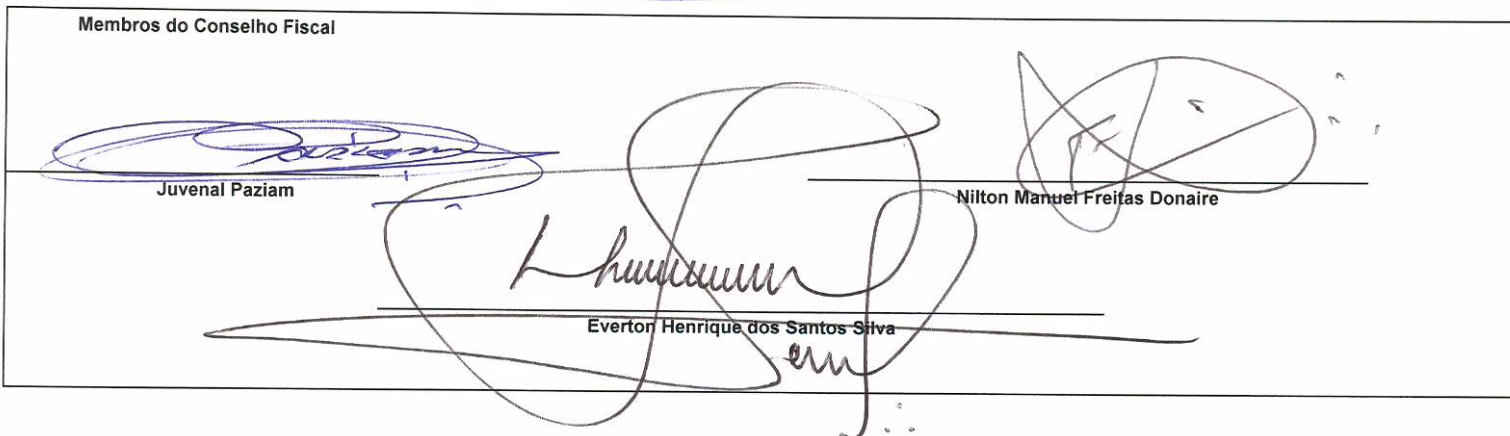 Membros do Conselho Fiscal
Juvenal Paziam
Nilton Manuel Freitas Donaire
Everton Henrique dos Santos Silva